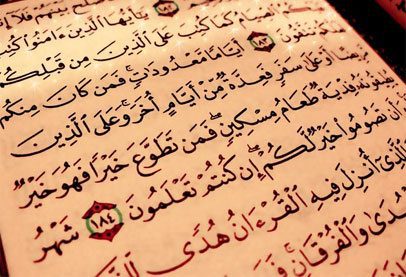 صْلَحَ بَيْنَهُمْ فَلَا
١٨٢ يَٰٓأَيُّهَا ٱلَّذِينَ ءَامَنُوا۟ كُتِبَ
كُمُ ٱلصِّيَامُ كَمَا كُتِبَ عَلَى ٱلَّذِينَ مِن قَبْلِكُمْ
تَتَّقُونَ ١٨٣ أَيَّامًا مَّعْدُودَٰتٍ ۚ فَمَن كَانَ مِنكُم
رِيضًا أَوْ عَلَىٰ سَفَرٍ فَعِدَّةٌ مِّنْ أَيَّامٍ أُخَرَ ۚ وَعَلَى ٱلَّذِينَ
طِيقُونَهُۥ فِدْيَةٌ طَعَامُ مِسْكِينٍ ۖ فَمَن تَطَوَّعَ خَيْرًا فَهُوَ خَيْرٌ
أَن تَصُومُوا۟ خَيْرٌ لَّكُمْ ۖ إِن كُنتُمْ تَعْلَمُونَ ١٨٤ شَهْرُ
ٱلَّذِىٓ أُنزِلَ فِيهِ ٱلْقُرْءَانُ هُدًى
هُدَىٰ وَٱلْفُرْقَانِ ۚ